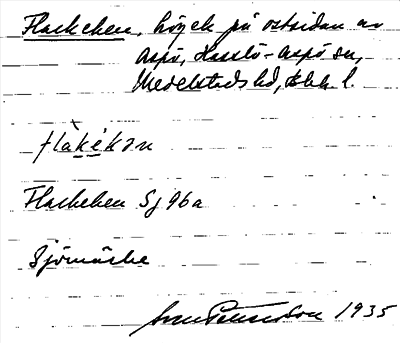 Flackeken, höjek på ostsidan av
Aspö, Hasslö-Aspö sn,
Medelstads hd, Blek. l.
flàkékən
Flackeken Sj 96a
Sjömärke
Sven Petersson 1935